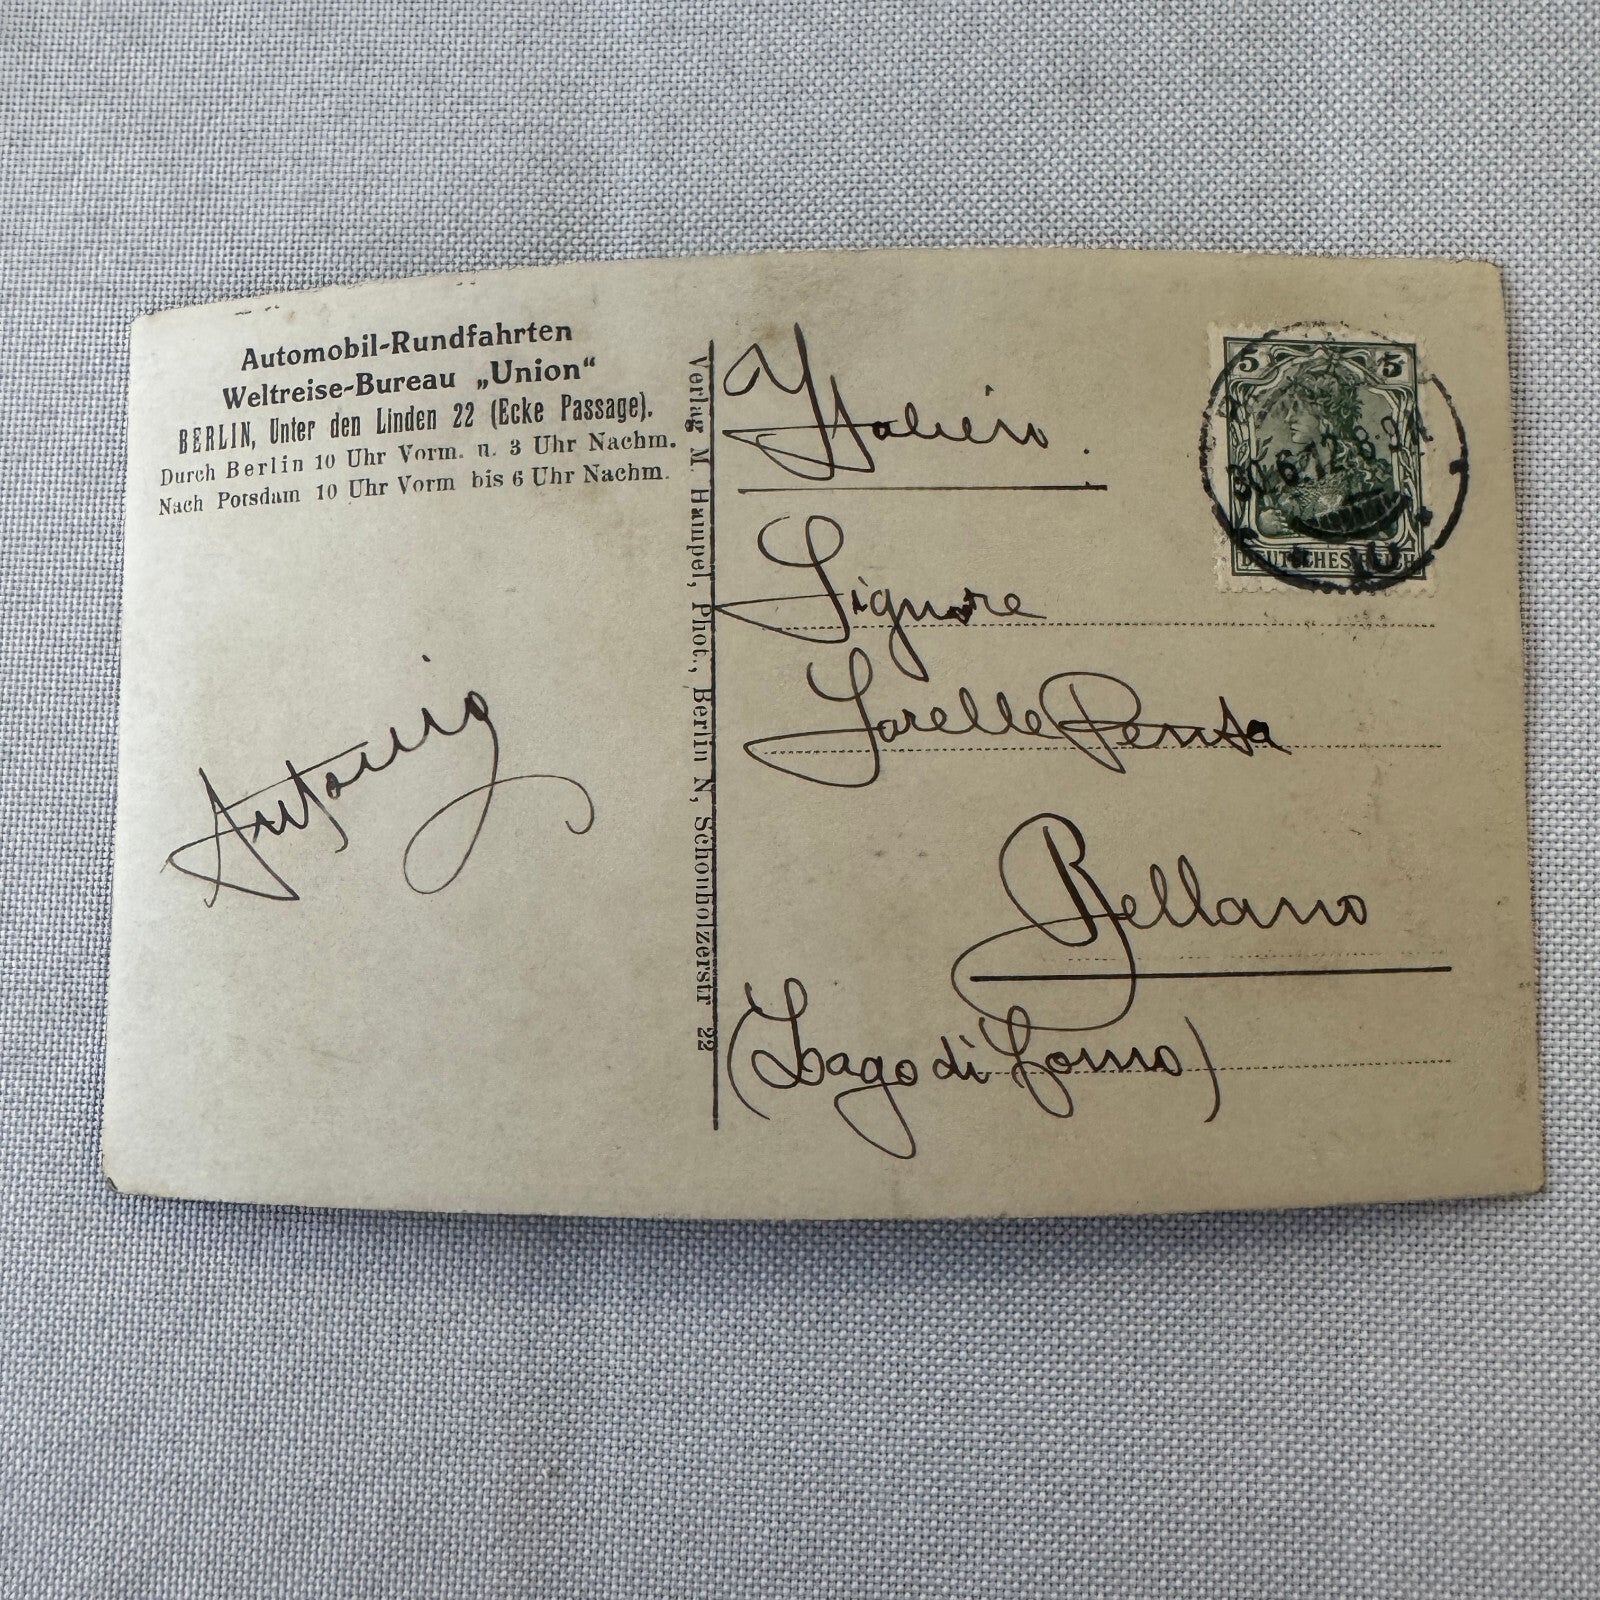 Automobil-Rundfahrten
Weltreise-Bureau „Union“
BERLIN, Unter den Linden 22 (Ecke Passage).
Durch Berlin 10 Uhr Vorm. u. 3 Uhr Nachm.
Nach Potsdam 10 Uhr Vorm bis 6 Uhr Nachm.
Antonio
Verlag M. Haumpel, Phot., Berlin N, Schönholzerstr 22
Italien.
Signore
Sorelle Pensa
Bellano
(Lago di Como)
5 5
DEUTSCHES REICH
30.6.12.8-9